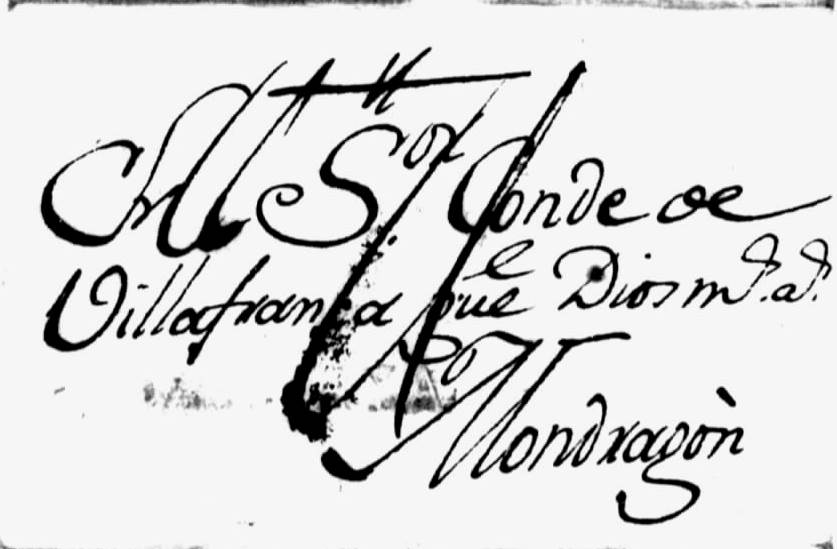 Sor Conde de
Villafranca gue Dios ms. as.
Mondragòn